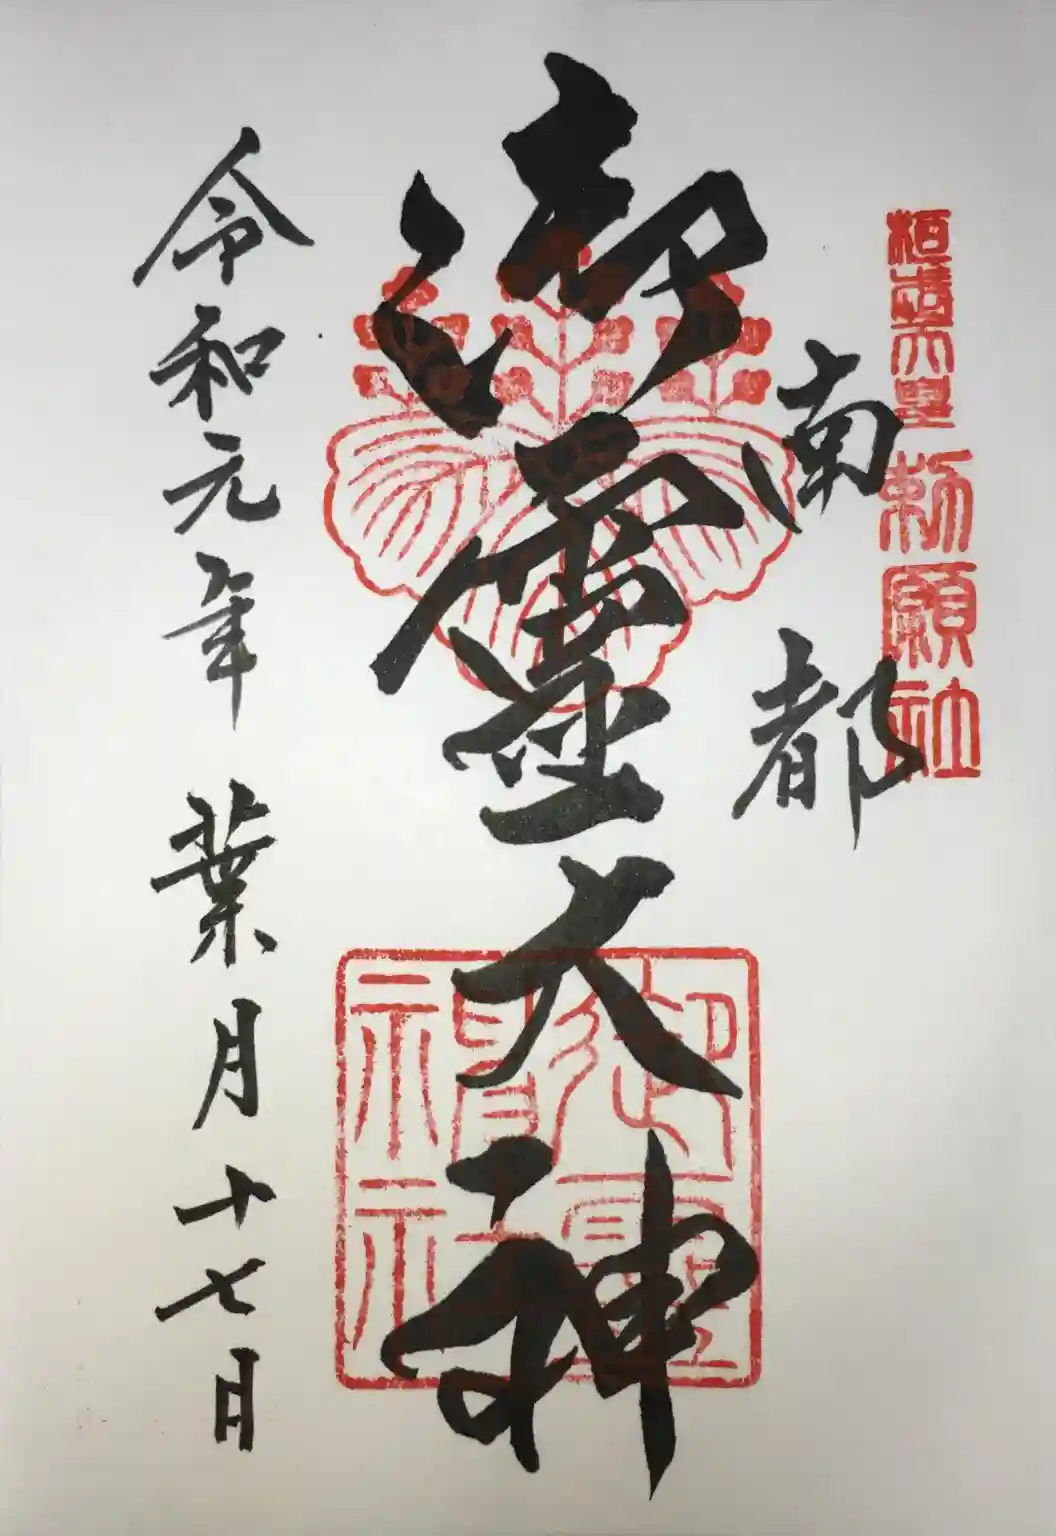 桓武天皇勅願社
南都
御霊大神
御霊神社
令和元年葉月十七日